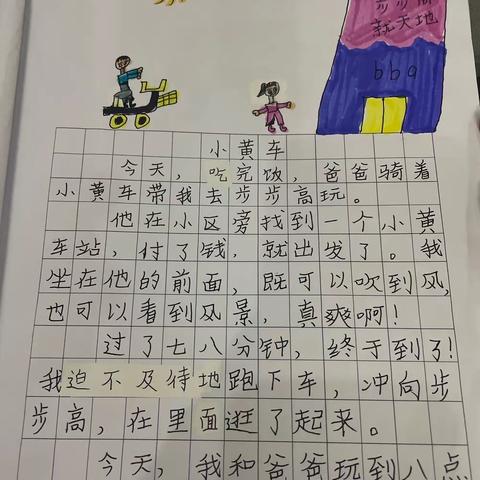 就天地
bba
小黄车
今天，吃完饭，爸爸骑着
小黄车带我去步步高玩。
他在小区旁找到一个小黄
车站，付了钱，就出发了。我
坐在他的前面，既可以吹到风，
也可以看到风景，真爽啊！
过了七八分钟，终于到了！
我迫不及待地跑下车，冲向步
步高，在里面逛了起来。
今天，我和爸爸玩到八点